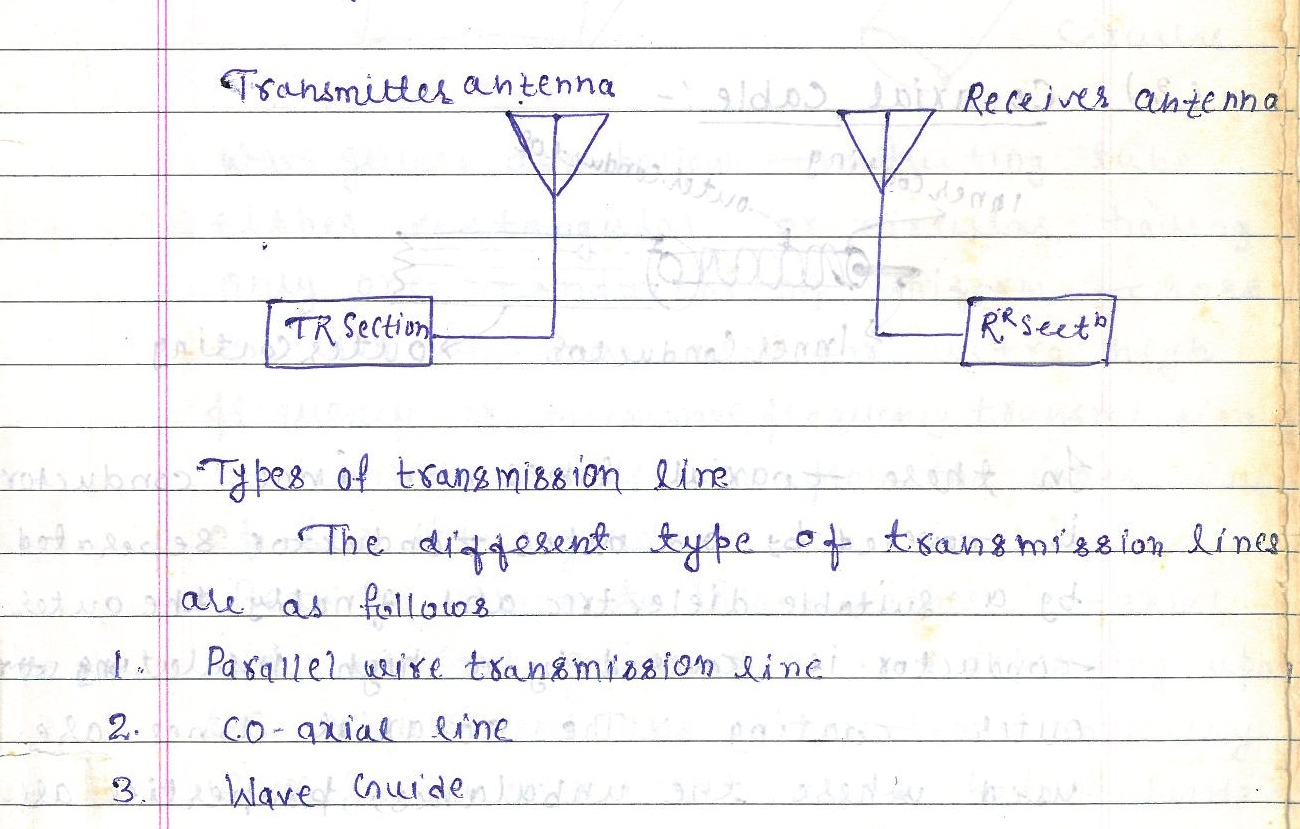 Transmitter antenna
Receiver antenna
TR Section
RR Sectn
Types of transmission line
The different type of transmission lines
are as follows
1. Parallel wire transmission line
2. Co-axial line
3. Wave Guide